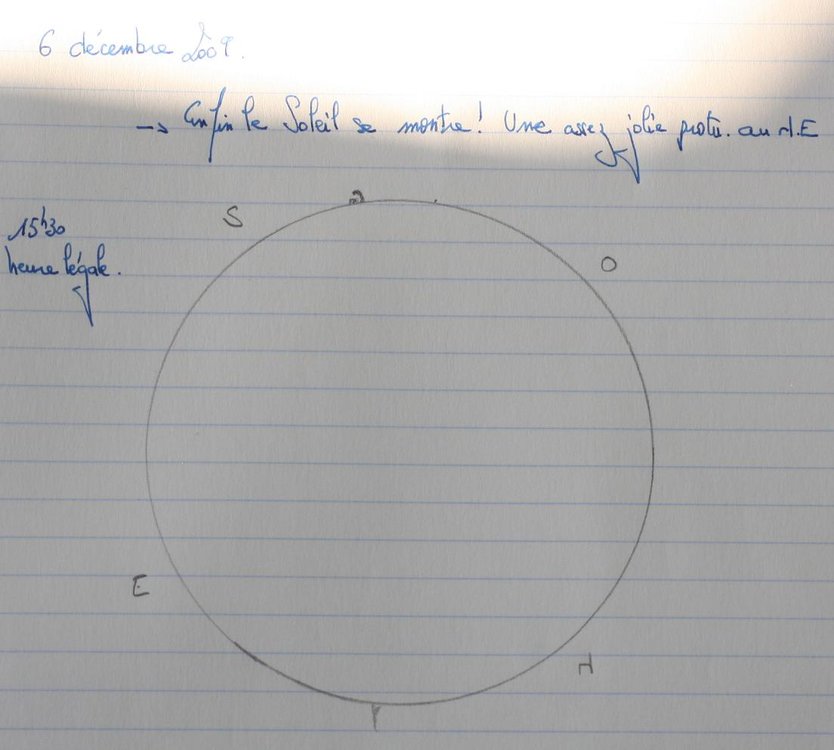 6 décembre 2009.
→ Enfin le Soleil se montre! Une assez jolie protu. au N.E
15h30
heure légale.
S
O
E
N